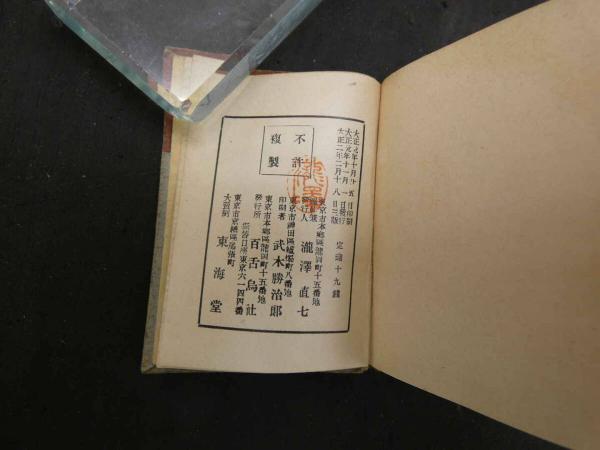 大正元年十月廿五日印刷
大正元年十一月一日發行
大正二年二月十八日三版
定價十九錢
不許
複製
東京市本郷區龍岡町十五番地
發行人 瀧澤直七
東京市神田區蠟燭町八番地
印刷者 武木勝治郎
東京市本郷區龍岡町十五番地
發行所 百舌鳥社
振替口座東京六一四四番
東京市京橋區尾張町
大賣捌 東海堂